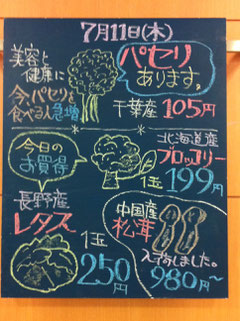 7月11日(木)
美容と
健康に
今、パセリを
食べる人急増
パセリ
あります。
千葉産 105円
今日の
お買得
北海道産
ブロッコリー
1玉 199円
長野産
レタス
1玉
250円
中国産
松茸
入荷しました。
980円〜